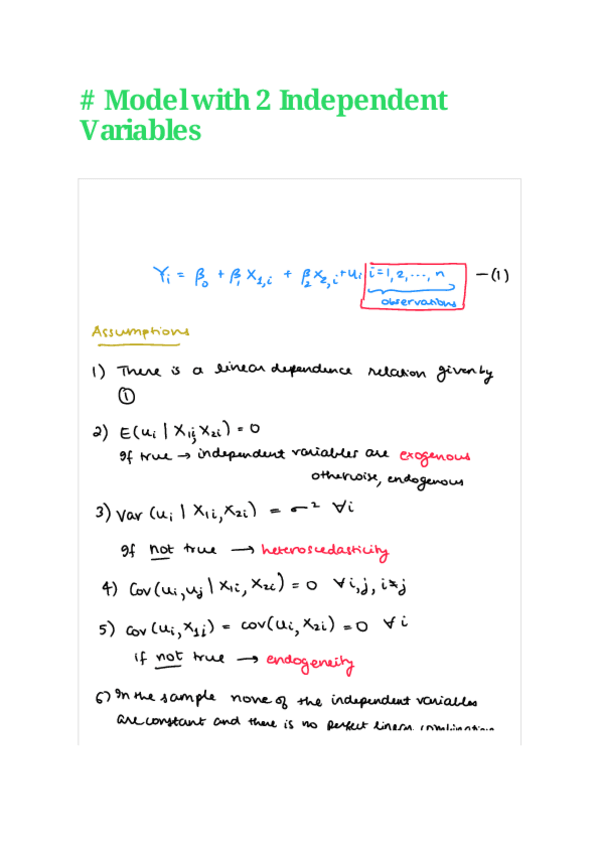 # Model with 2 Independent
Variables
Yi = β0 + β1 X1,i + β2 X2,i + ui i=1,2,...,n —(1)
observations
Assumptions
1) There is a linear dependence relation given by
①
2) E(ui | X1i, X2i) = 0
If true → independent variables are exogenous
otherwise, endogenous
3) Var (ui | X1i, X2i) = σ² ∀i
If not true → heteroscedasticity
4) Cov (ui, uj | X1i, X2i) = 0 ∀ i,j, i≠j
5) cov (ui, X1i) = cov(ui, X2i) = 0 ∀ i
if not true → endogeneity
6) In the sample none of the independent variables
are constant and there is no perfect linear combination